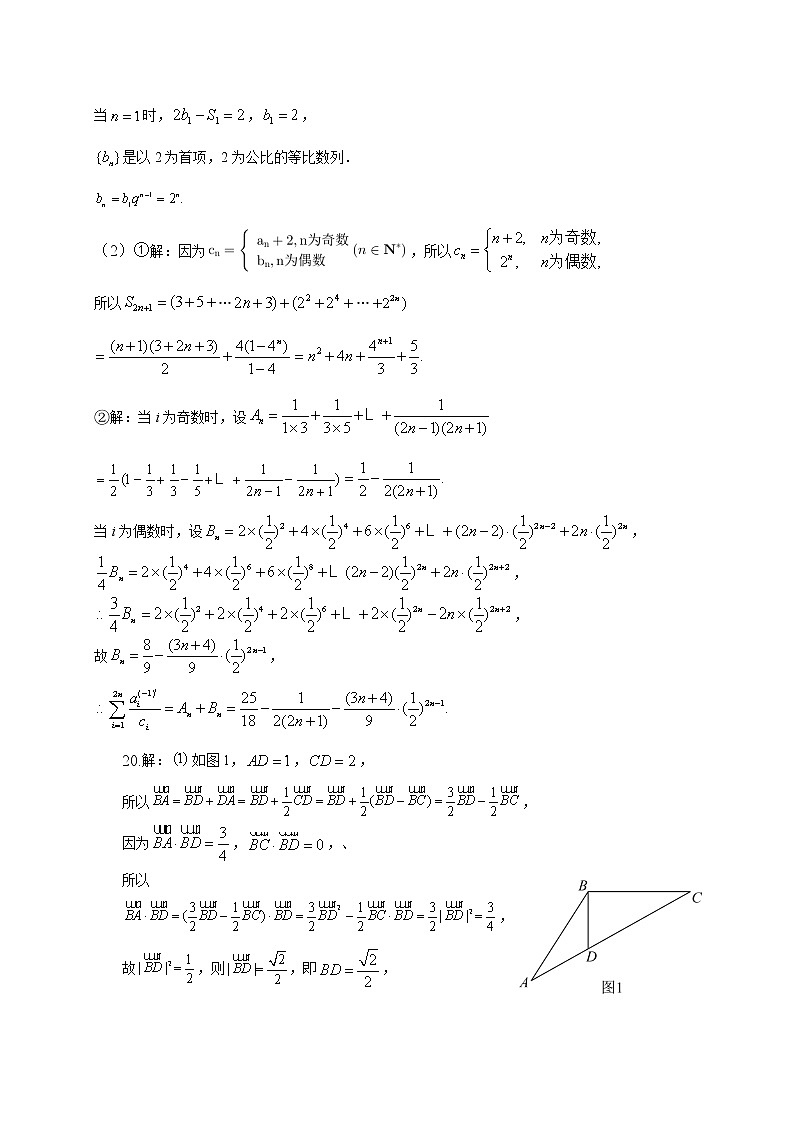 当 n = 1 时，2b₁ − S₁ = 2，b₁ = 2，
{bₙ} 是以 2 为首项，2 为公比的等比数列．
bₙ = b₁qⁿ⁻¹ = 2ⁿ.
（2）①解：因为 cₙ = { aₙ + 2, n为奇数 ; bₙ, n为偶数 (n ∈ N*)，所以 cₙ = { n + 2, n为奇数, ; 2ⁿ, n为偶数,
所以 S₂ₙ₊₁ = (3 + 5 + ··· 2n + 3) + (2² + 2⁴ + ··· + 2²ⁿ)
= (n+1)(3+2n+3)/2 + 4(1−4ⁿ)/(1−4) = n² + 4n + 4ⁿ⁺¹/3 + 5/3.
②解：当 i 为奇数时，设 Aₙ = 1/(1×3) + 1/(3×5) + L + 1/((2n−1)(2n+1))
= 1/2(1 − 1/3 + 1/3 − 1/5 + L + 1/(2n−1) − 1/(2n+1)) = 1/2 − 1/(2(2n+1)).
当 i 为偶数时，设 Bₙ = 2×(1/2)² + 4×(1/2)⁴ + 6×(1/2)⁶ + L + (2n−2)·(1/2)²ⁿ⁻² + 2n·(1/2)²ⁿ，
1/4 Bₙ = 2×(1/2)⁴ + 4×(1/2)⁶ + 6×(1/2)⁸ + L (2n−2)(1/2)²ⁿ + 2n·(1/2)²ⁿ⁺²，
∴ 3/4 Bₙ = 2×(1/2)² + 2×(1/2)⁴ + 2×(1/2)⁶ + L + 2×(1/2)²ⁿ − 2n×(1/2)²ⁿ⁺²，
故 Bₙ = 8/9 − (3n+4)/9 · (1/2)²ⁿ⁻¹，
∴ ∑_{i=1}^{2n} aᵢ^{(−1)^i}/cᵢ = Aₙ + Bₙ = 25/18 − 1/(2(2n+1)) − (3n+4)/9 · (1/2)²ⁿ⁻¹.
20.解：(1) 如图 1，AD = 1，CD = 2，
所以 BA = BD + DA = BD + 1/2 CD = BD + 1/2(BD − BC) = 3/2 BD − 1/2 BC，
因为 BA · BD = 3/4，BC · BD = 0，、
所以
BA · BD = (3/2 BD − 1/2 BC) · BD = 3/2 BD² − 1/2 BC · BD = 3/2 |BD|² = 3/4，
故 |BD|² = 1/2，则 |BD| = √2/2，即 BD = √2/2，
B
C
D
A
图1